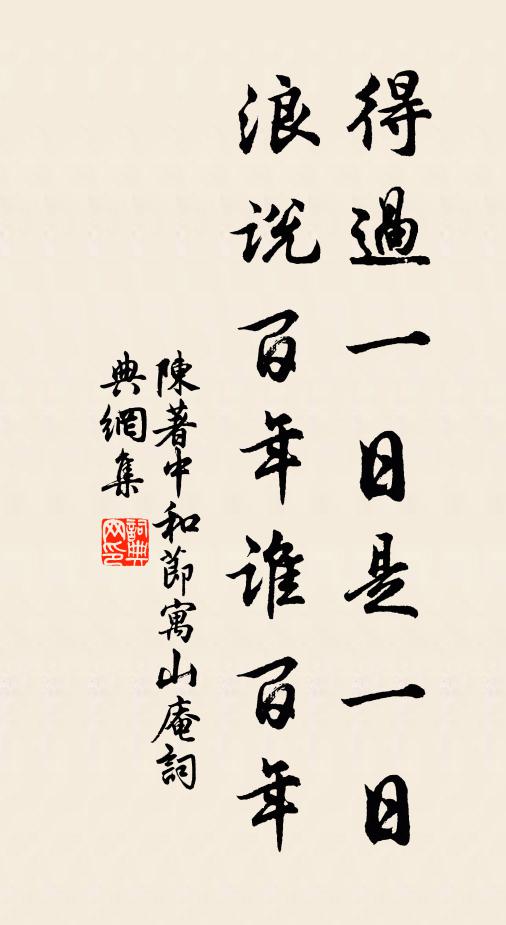 得過一日是一日
浪説百年誰百年
陳著中和節寓山庵詞
典網集
詞典
网印